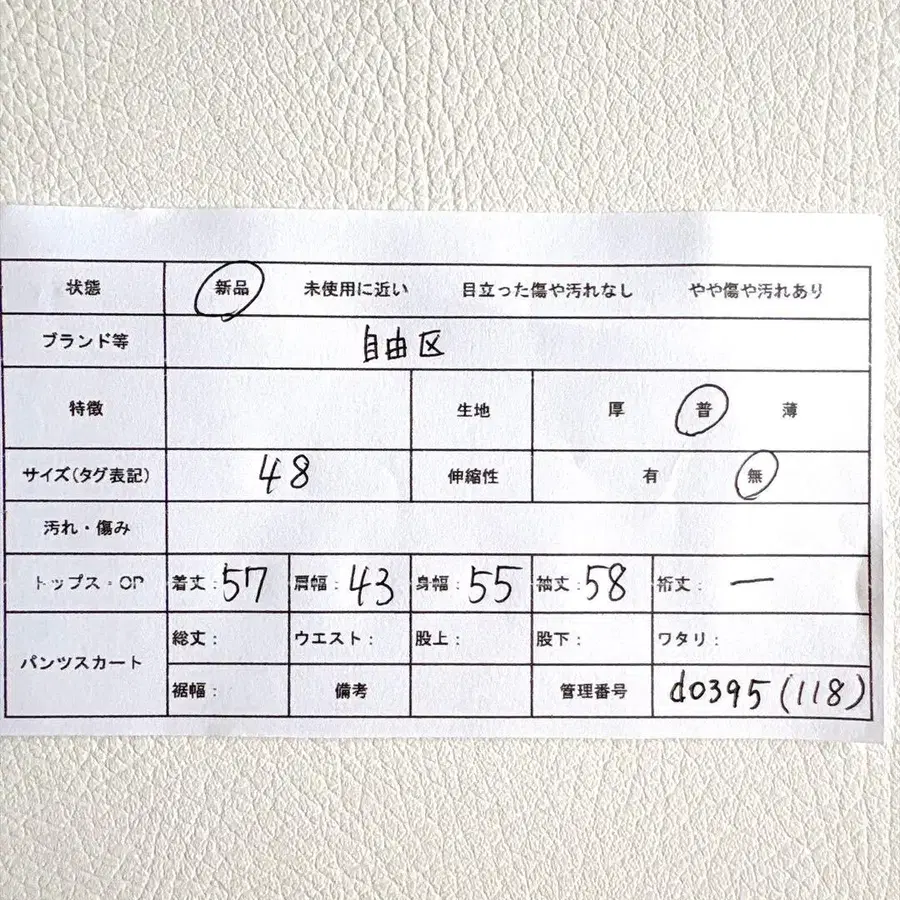 状態 新品 未使用に近い 目立った傷や汚れなし やや傷や汚れあり
ブランド等 自由区
特徴 生地 厚 普 薄
サイズ(タグ表記) 48 伸縮性 有 無
汚れ・傷み
トップス・OP 着丈:57 肩幅:43 身幅:55 袖丈:58 裄丈: ー
パンツスカート 総丈: ウエスト: 股上: 股下: ワタリ:
裾幅: 備考 管理番号 d0395(118)